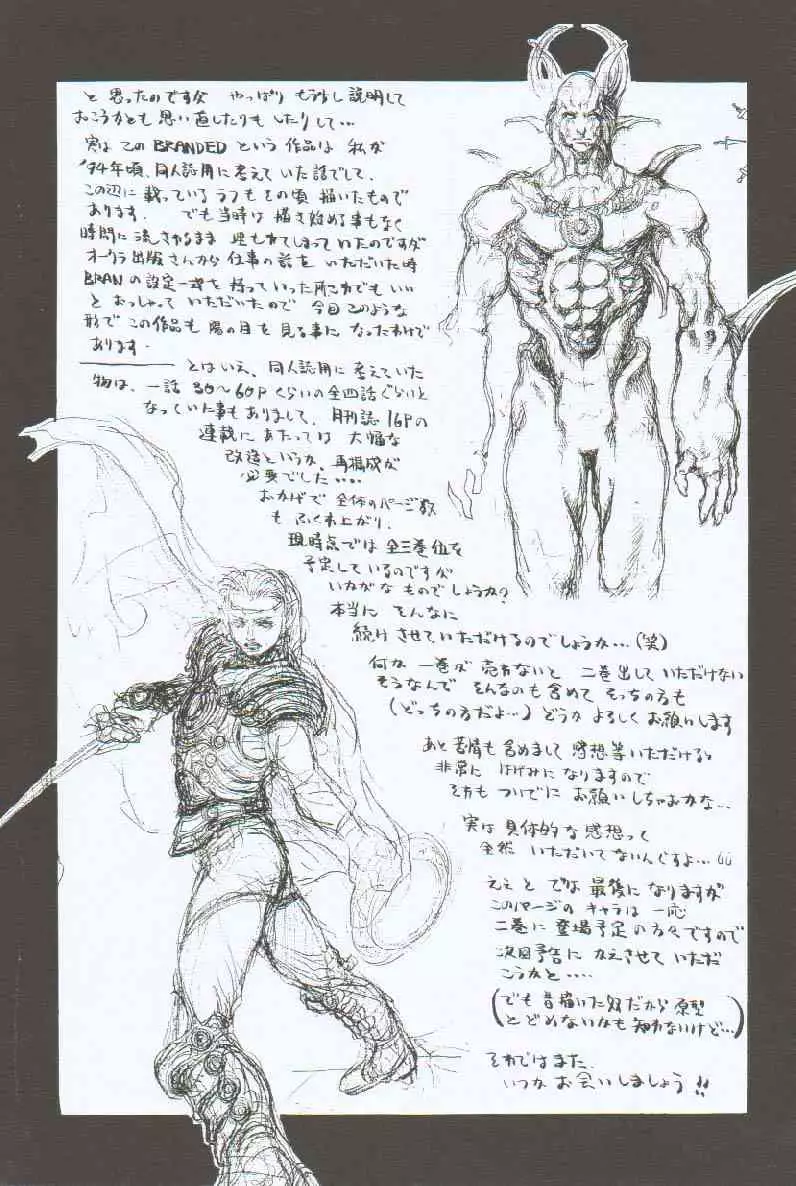 と思ったのですが やっぱりもう少し説明して
おこうかとも思い直したりもしたりして…
実はこのBRANDEDという作品は私が
'94年頃、同人誌用に考えていた話でして、
この辺に載っているラフもその頃描いたもので
あります. でも当時は描き始める事もなく
時間に流されるまま 埋もれてしまっていたのですが
オークラ出版さんから仕事の話をいただいた時
BRANの設定一式を持っていった所これでもいい
とおっしゃっていただいたので 今回このような
形でこの作品も陽の目を見る事になったわけで
あります.
とはいえ、同人誌用に考えていた
物は、一話30〜60Pくらいの全四話ぐらいと
なっていた事もありまして、月刊誌16Pの
連載にあたっては 大幅な
改造というか、再構成が
必要でした….
おかげで全体のページ数
もふくれ上がり、
現時点では全三巻位を
予定しているのですが
いかがなものでしょうか?
本当に そんなに
続けさせていただけるのでしょうか…(笑)
何か 一巻が売れないと 二巻出していただけない
そうなんで そんなのも含めて そっちの方も
(どっちの方だよ…)どうか よろしくお願いします
あと苦情も含めまして 感想等いただけると
非常に はげみになりますので
それもついでに お願いしちゃおかな…
実は具体的な感想って
全然 いただいてないんですよ…
ええと では 最後になりますが
このページの キャラは 一応
二巻に登場予定の方々ですので
次回予告に かえさせて いただ
こうかと….
(でも昔描いた奴だから 原型
とどめないかも知れないけど…)
それではまた、
いつか お会いしましょう!!